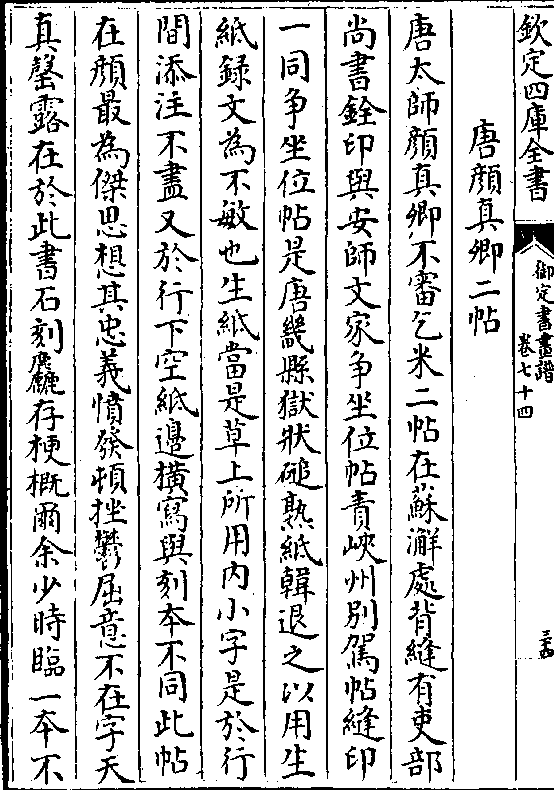 欽定四庫全書
御定書畫譜
卷七十四
三十四
唐顔真卿二帖
唐太師顔真卿不審乞米二帖在蘇澥處背縫有吏部
尚書銓印與安師文家争坐位帖責峽州别駕帖縫印
一同争坐位帖是唐畿縣獄狀磓熟紙韓退之以用生
紙録文為不敏也生紙當是草上所用内小字是於行
間添注不盡又於行下空紙邊横寫與刻本不同此帖
在顔最為傑思想其忠義憤發頓挫鬱屈意不在字天
真罄露在於此書石刻麤存梗概爾余少時臨一本不